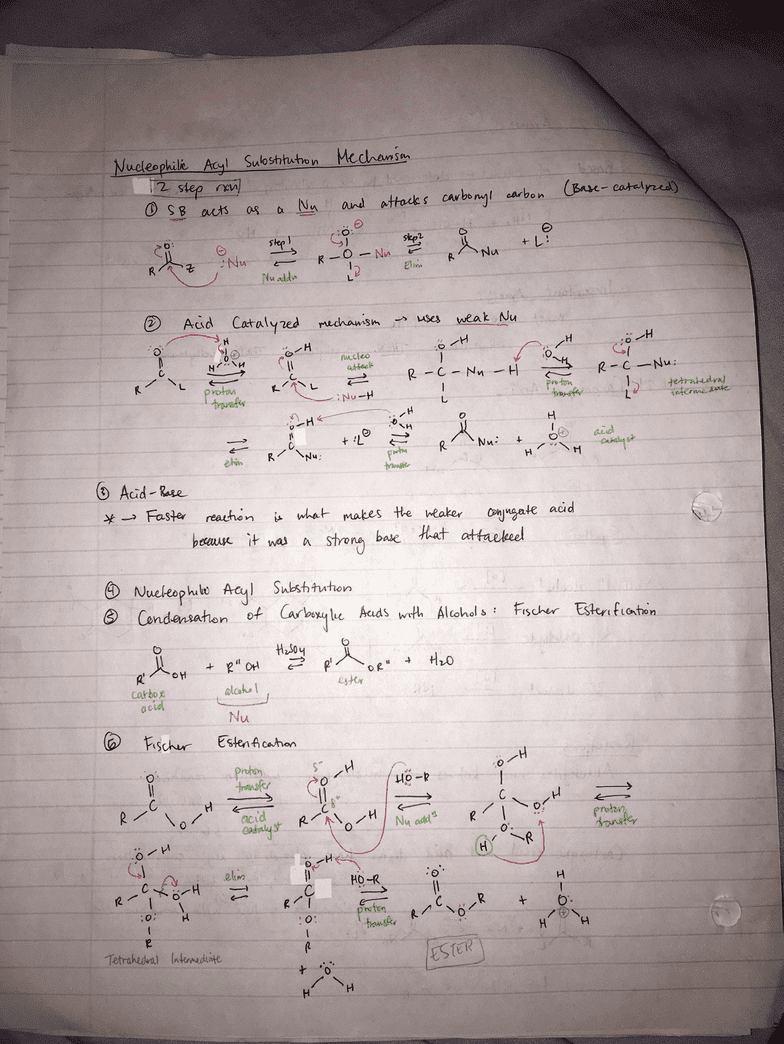 Nucleophilic Acyl Substitution Mechanism
2 step rxn
① SB acts as a Nu and attacks carbonyl carbon (Base-catalyzed)
R Z :Nu ⊖ step 1 Nu addn R - O - Nu L step 2 elim R Nu + L:⊖
② Acid Catalyzed mechanism → uses weak Nu
R C L O H H H proton transfer R C L O-H :Nu-H nucleo attack R - C - Nu - H O-H L H H proton transfer R - C - Nu: O-H L tetrahedral intermediate
elim R C Nu: O-H + :L⊖ H H proton transfer R O Nu: + H O⊕ H H acid catalyst
③ Acid-Base
* → Faster reaction is what makes the weaker conjugate acid
because it was a strong base that attacked
④ Nucleophilic Acyl Substitution
⑤ Condensation of Carboxylic Acids with Alcohols: Fischer Esterification
R' O OH + R" OH H₂SO₄ R' O OR" + H₂O
carbox acid alcohol ester
Nu
⑥ Fischer Esterification
R C O O H proton transfer acid catalyst δ- O H R C δ+ O H HO-R Nu addn O-H R C O H O R H proton transfer
O H R C O H H O R elim O-H R C O R HO-R proton transfer O R C O R + H O⊕ H H
Tetrahedral Intermediate
+ O H H
ESTER